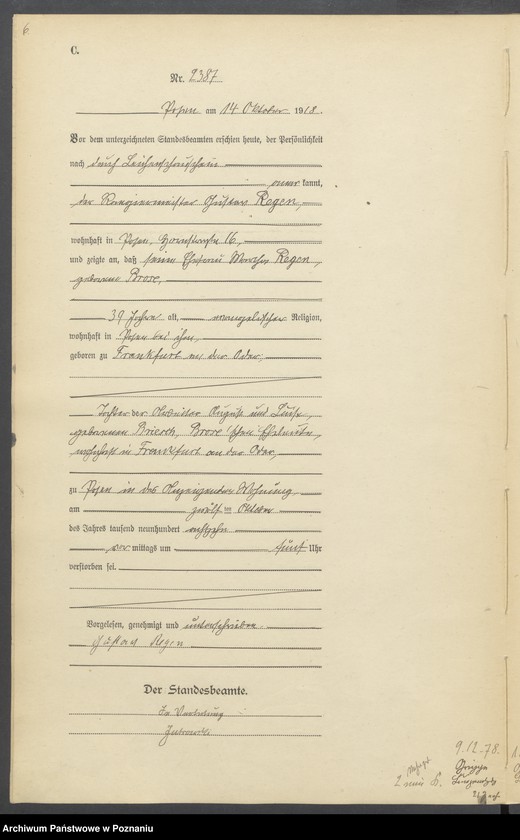 6.
C.
Nr. 2387
Posen am 14 Oktober 1918.
Vor dem unterzeichneten Standesbeamten erschien heute, der Persönlichkeit
nach durch Leichenschauschein
aner kannt,
der Rangiermeister Gustav Regen,
wohnhaft in Posen, 16,
und zeigte an, daß seine Ehefrau Martha Regen,
geborene Brose,
39 Jahre alt, evangelischer Religion,
wohnhaft in Posen bei ihm,
geboren zu Frankfurt an der Oder,
Tochter der August und Luise,
geborenen Brose'schen Eheleute,
wohnhaft in Frankfurt an der Oder,
zu Posen in des Anzeigenden Wohnung
am zwölften Oktober
des Jahres tausend neunhundert achtzehn
vor mittags um fünf Uhr
verstorben sei.
Vorgelesen, genehmigt und unterschrieben
Gustav Regen
Der Standesbeamte.
In Vertretung
9.12.78.
Grippe
Archiwum Państwowe w Poznaniu